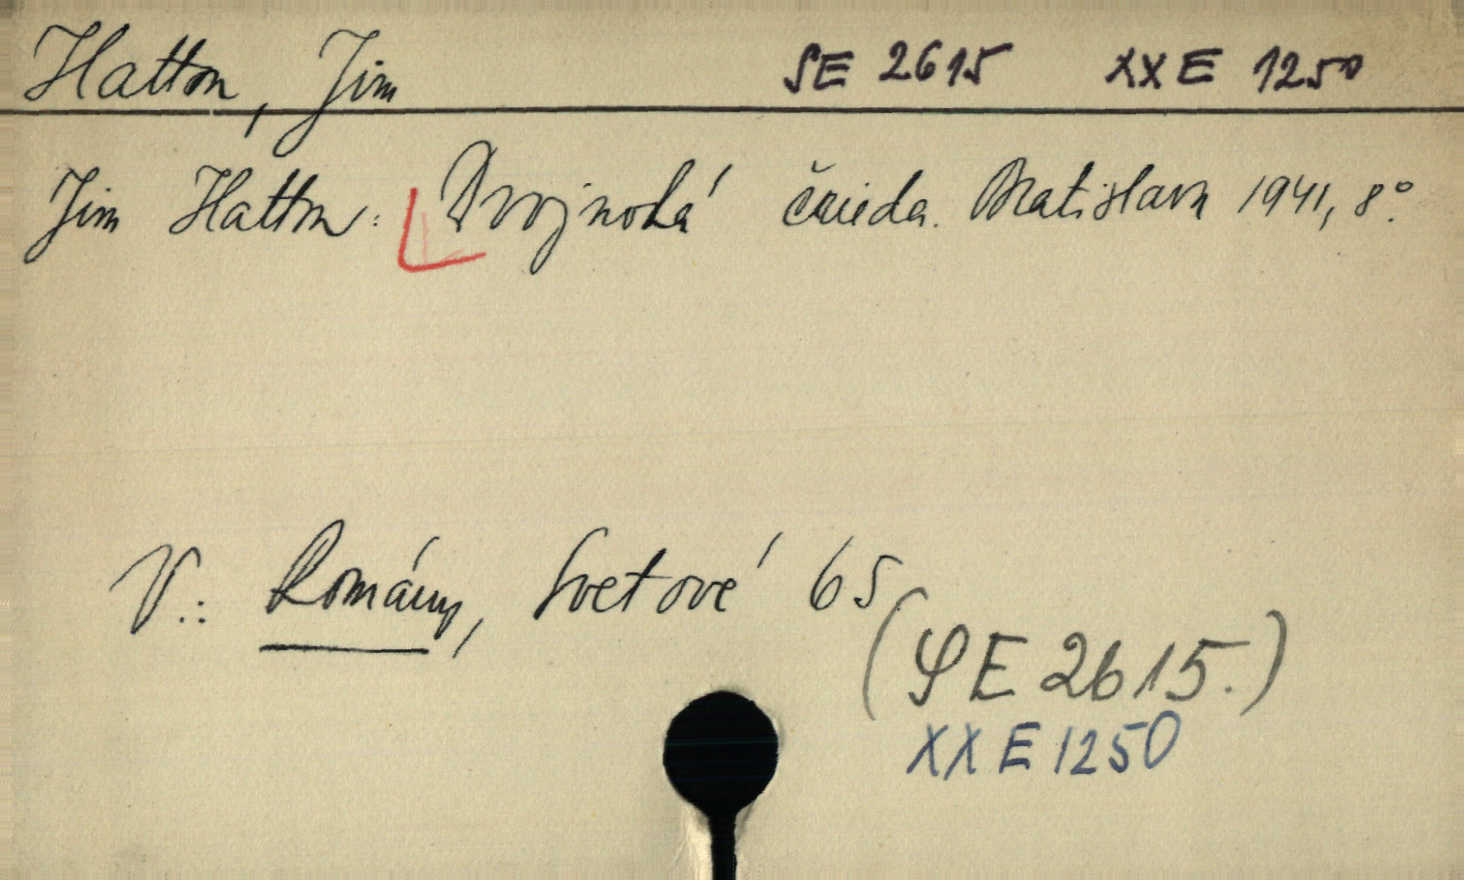 Hatton, Jim SE 2615 XX E 1250
Jim Hatton: Dvojnohá črieda. Bratislava 1941, 8°.
V.: Romány, Svetové 65
(SE 2615.)
XX E 1250